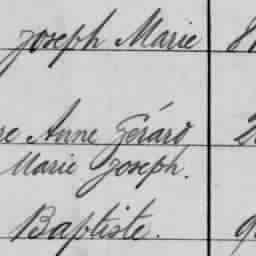 Joseph Marie 8
re Anne Gérard 2
Marie Joseph.
Baptiste. 9